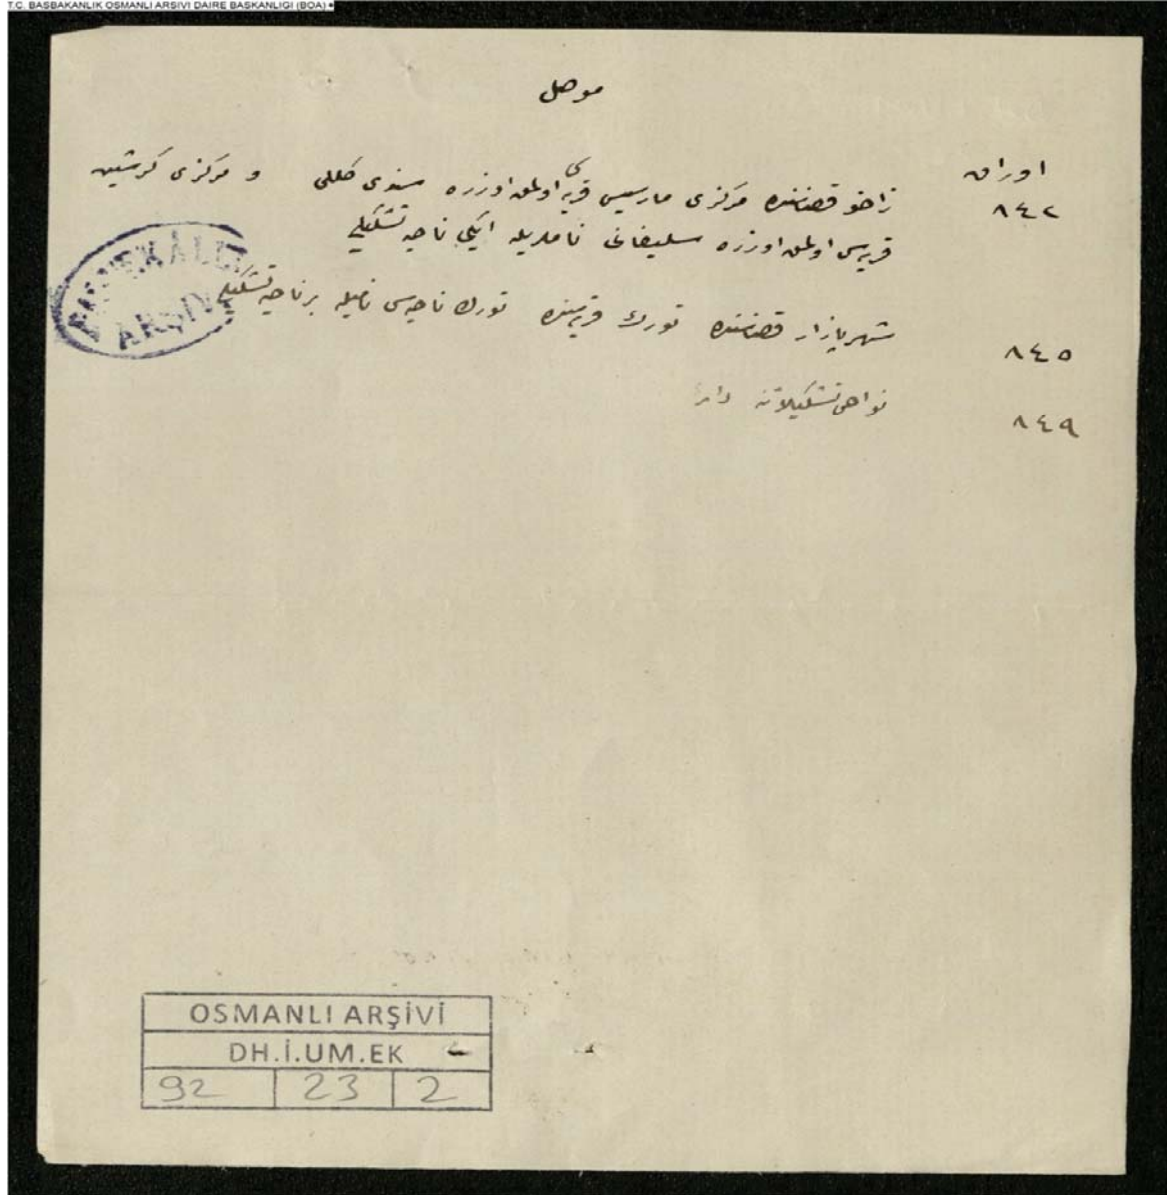 T.C. BASBAKANLIK OSMANLI ARSIVI DAIRE BASKANLIGI (BOA)
موصل
اوراق
٨٤٢
زاخو قضاسنده مركزى مارسيس قريه‌سى اولمق اوزره سندى كللى و مركزى كرشين
قريه‌سى اولمق اوزره سليفانى نامليله ايكى ناحيه تشكيلى
٨٤٥
شهربازار قضاسنده تورك قريه‌سنده تورك ناحيه‌سى ناميله بر ناحيه تشكيلى
٨٤٩
نواحى تشكيلاتنه دائر
ARŞİV
OSMANLI ARŞİVİ
DH.İ.UM.EK
92 23 2